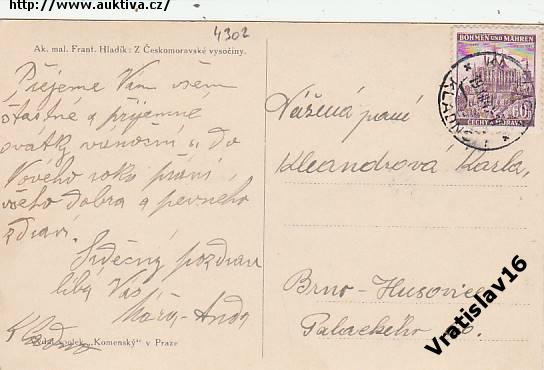 http://www.auktiva.cz/
4302
Ak. mal. Frant. Hladík: Z Českomoravské vysočiny.
Přejeme Vám všem
šťastné a příjemné
svátky vánoční a do
Nového roku přání
všeho dobra a pevného
zdraví.
Srdečný pozdrav
líbá Vás
Máry - Anda
spolek „Komenský“ v Praze
BÖHMEN UND MÄHREN
60
ČECHY A MORAVA
KLADNO
Vážená paní
Kleandrova Karla,
Brno - Husovice
Palackého
Vratislav16